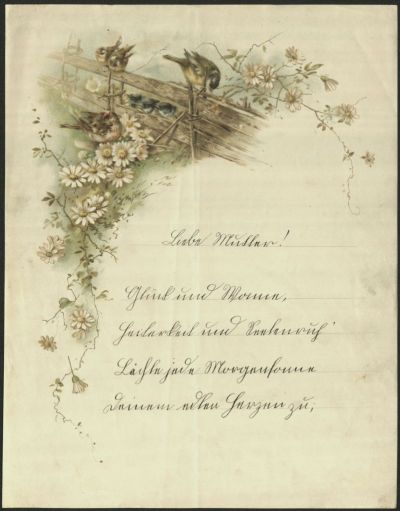 Liebe Mutter!
Glück und Wonne,
Heiterkeit und Seelenruh'
Lächle jede Morgensonne
Deinem edlen Herzen zu,